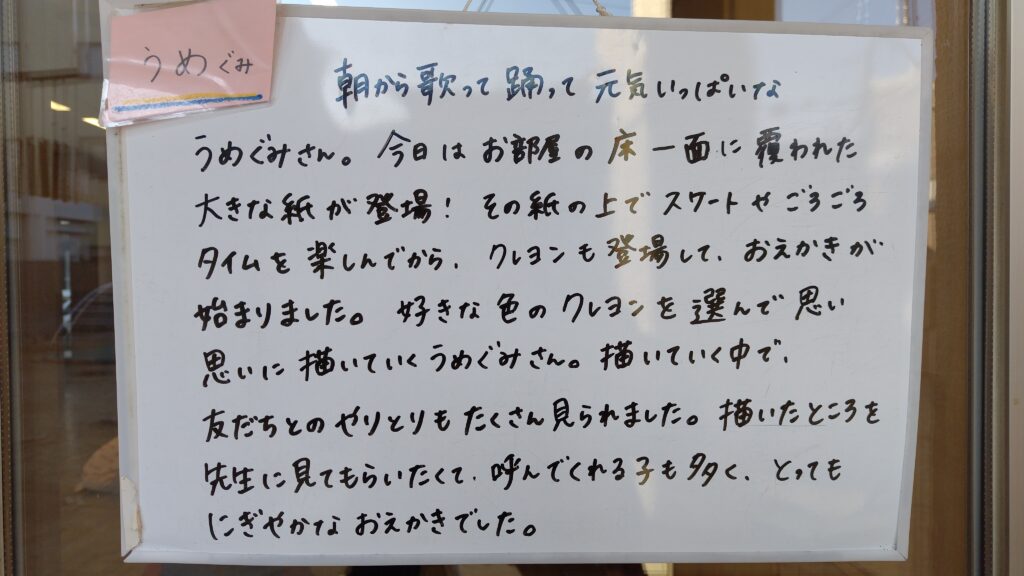 うめぐみ
朝から歌って踊って元気いっぱいな
うめぐみさん。今日はお部屋の床一面に覆われた
大きな紙が登場！その紙の上でスケートやごろごろ
タイムを楽しんでから、クレヨンも登場して、おえかきが
始まりました。好きな色のクレヨンを選んで思い
思いに描いていくうめぐみさん。描いていく中で、
友だちとのやりとりもたくさん見られました。描いたところを
先生に見てもらいたくて、呼んでくれる子も多く、とっても
にぎやかなおえかきでした。